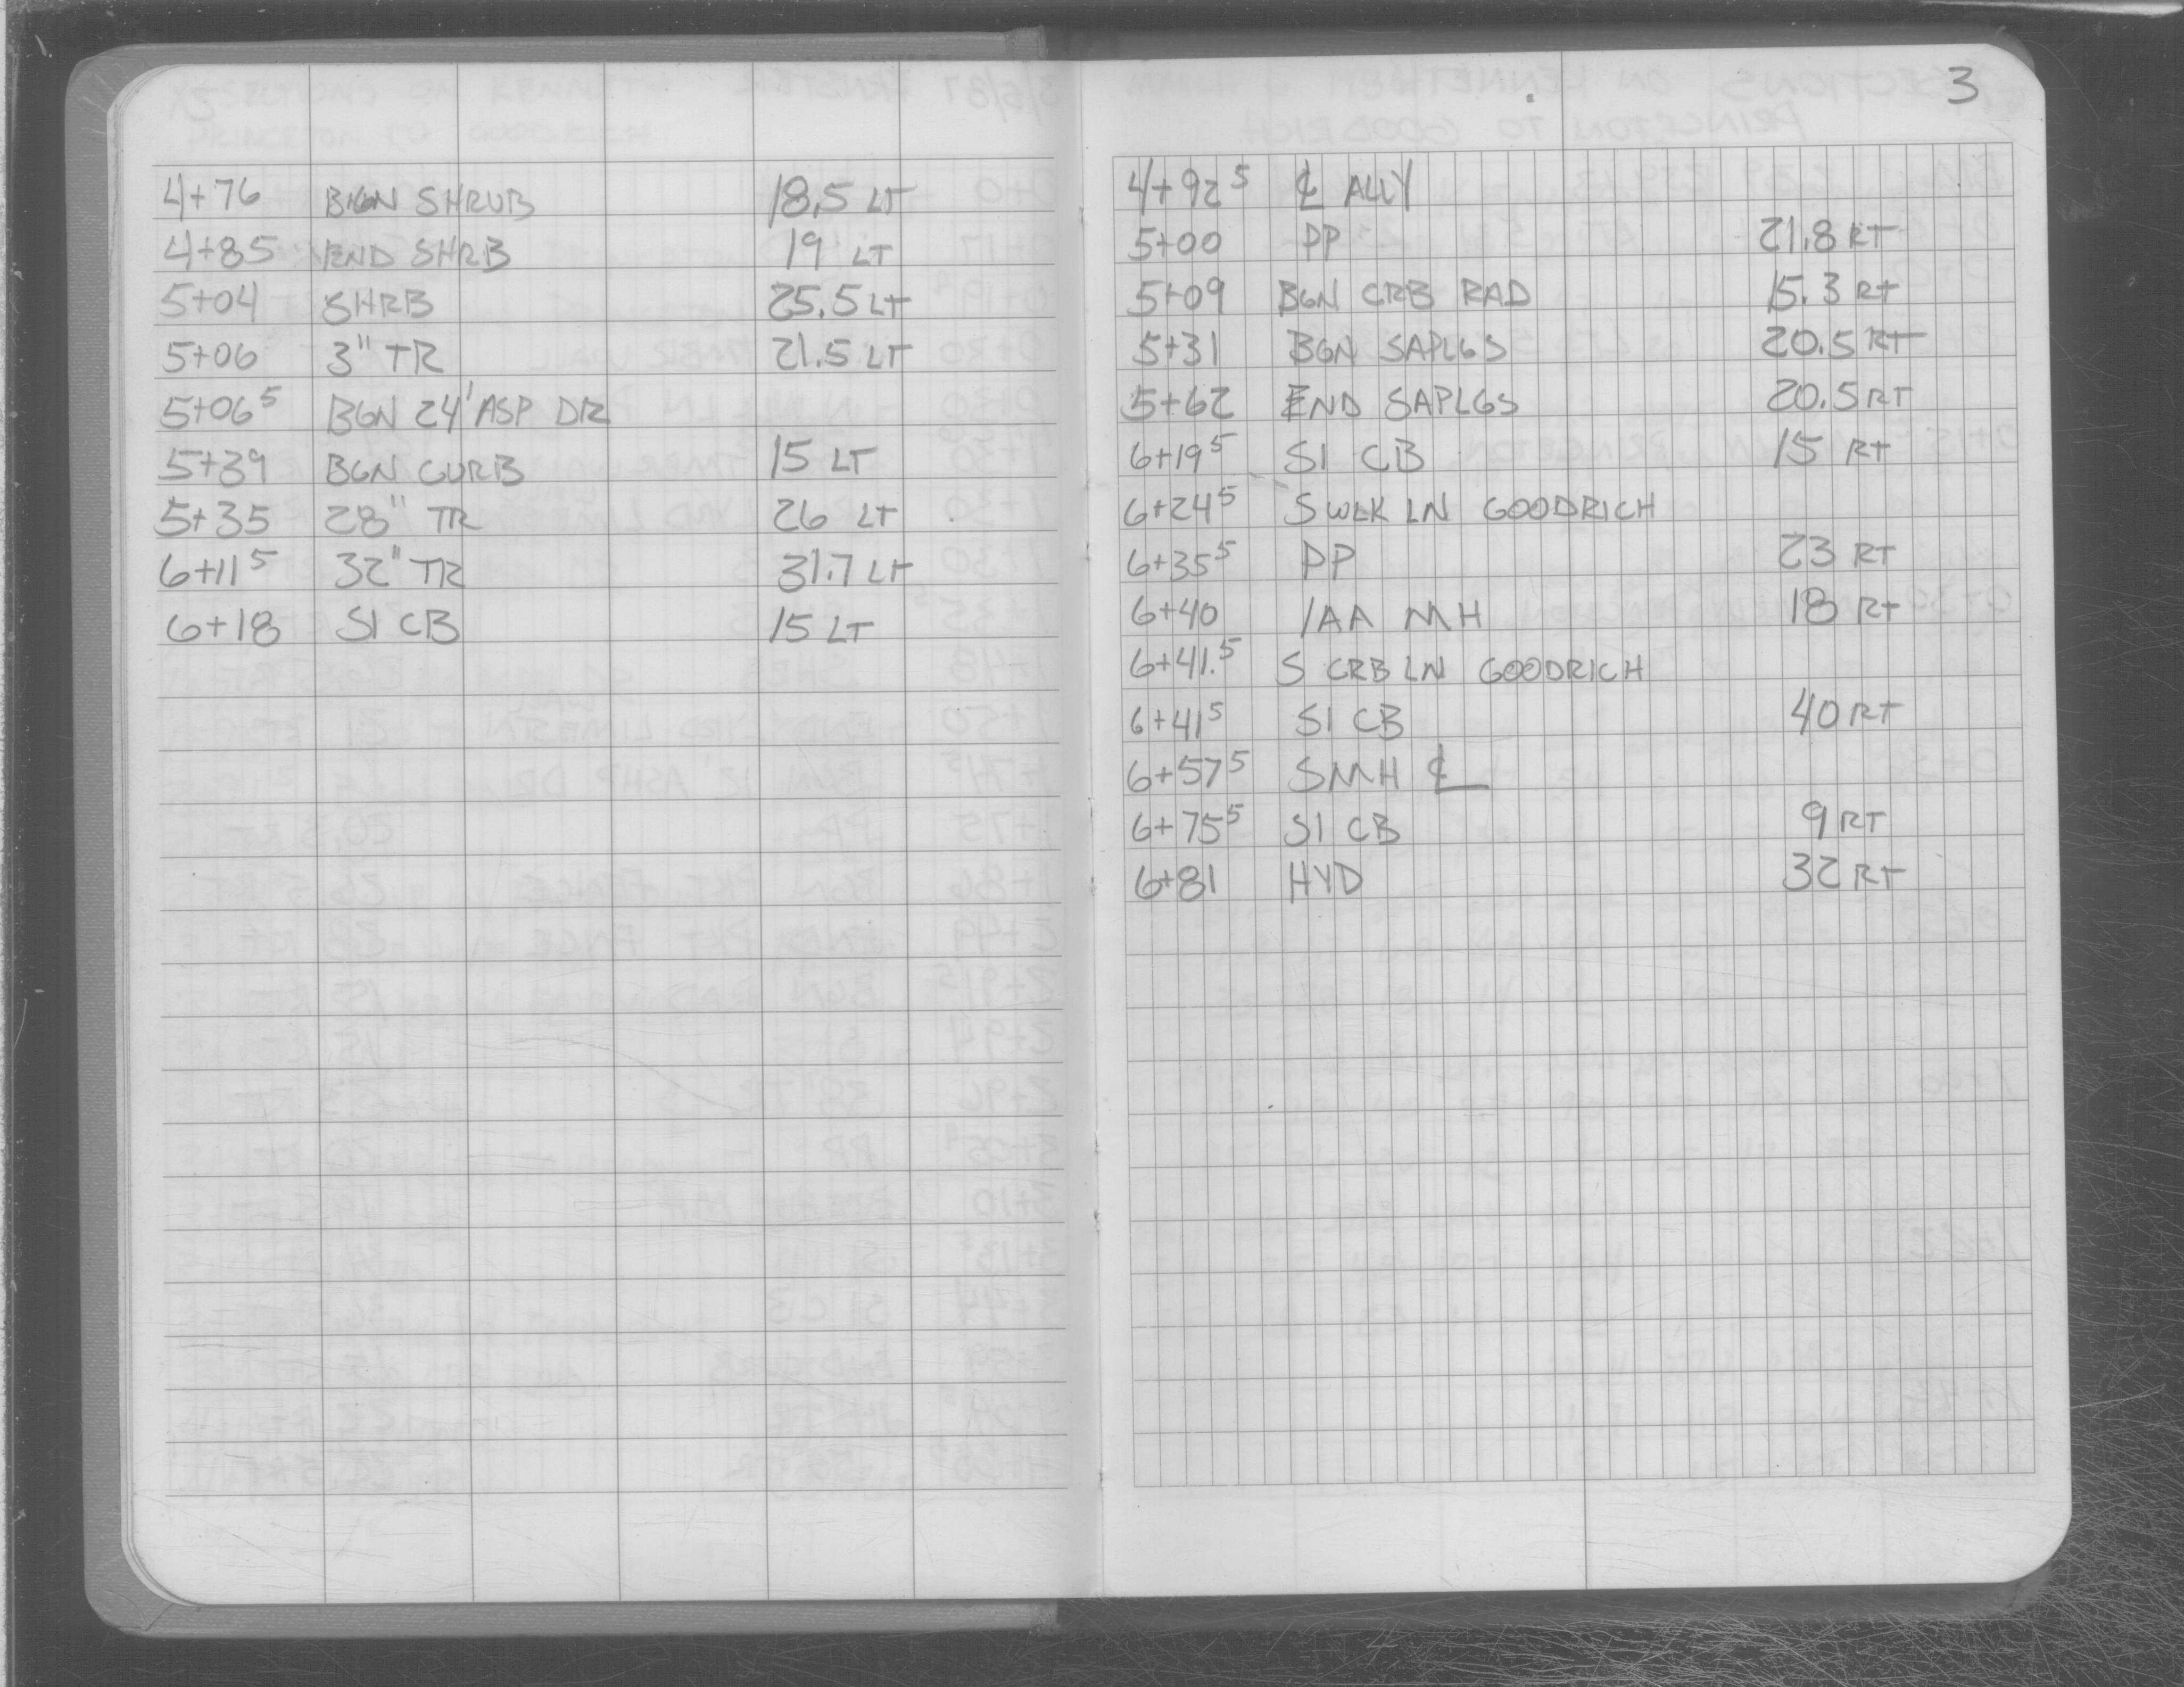 4+76 BGN SHRUB 18.5 LT
4+85 END SHRB 19 LT
5+04 SHRB 25.5 LT
5+06 3" TR 21.5 LT
5+06⁵ BGN 24' ASP DR
5+39 BGN CURB 15 LT
5+35 28" TR 26 LT
6+11⁵ 32" TR 31.7 LT
6+18 SI CB 15 LT
3
4+92⁵ ℄ ALLY
5+00 PP 21.8 RT
5+09 BGN CRB RAD 15.3 RT
5+31 BGN SAPLGS 20.5 RT
5+62 END SAPLGS 20.5 RT
6+19⁵ SI CB 15 RT
6+24⁵ S WLK LN GOODRICH
6+35⁵ PP 23 RT
6+40 MH 18 RT
6+41.⁵ S CRB LN GOODRICH
6+41⁵ SI CB 40 RT
6+57⁵ SMH ℄
6+75⁵ SI CB 9 RT
6+81 HYD 32 RT